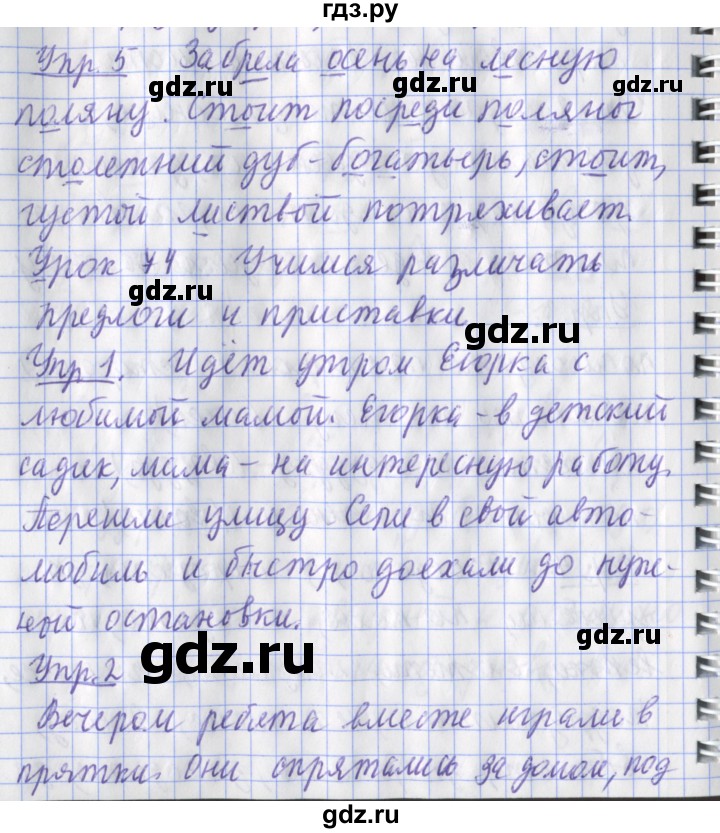 гдз.ру
Упр. 5 Забрела осень на лесную
поляну. Стоит посреди поляны
столетний дуб-богатырь, стоит,
густой листвой потряхивает.
Урок 74 Учимся различать
предлоги и приставки
Упр 1. Идёт утром Егорка с
любимой мамой. Егорка - в детский
садик, мама - на интересную работу.
Перешли улицу Сели в свой авто-
мобиль и быстро доехали до нуж-
ной остановки.
Упр. 2
Вечером ребята вместе играли в
прятки. Они спрятались за домом, под
gdz.ru
gdz.ru
gdz.ru
gdz.ru
gdz.ru
gdz.ru
gdz.ru
gdz.ru
gdz.ru